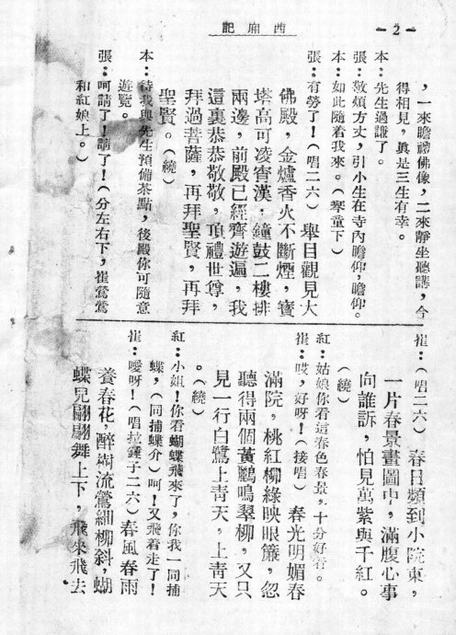 西廂記
—2—
，一來瞻禮佛像，二來靜坐聽講，今
得相見，眞是三生有幸。
本：先生過謙了。
張：敬煩方丈，引小生在寺內瞻仰，瞻仰。
本：如此隨着我來。（琴童下）
張：有勞了！（唱二六）舉目觀見大
佛殿，金爐香火不斷煙，寳
塔高可凌霄漢，鐘鼓二樓排
兩邊，前殿已經齊遊遍，我
這裏恭恭敬敬，頂禮世尊，
拜過菩薩，再拜聖賢，再拜
聖賢。（繞）
本：待我與先生預備茶點，後殿你可隨意
遊覽。
張：呵請了！請了！（分左右下，崔鶯鶯
和紅娘上。）
崔：（唱二六）春日頻到小院東，
一片春景畫圖中，滿腹心事
向誰訴，怕見萬紫與千紅。
（繞）
紅：姑娘你看這春色春景，十分好看。
崔：哎，好呀！（接唱）春光明媚春
滿院，桃紅柳綠映眼簾，忽
聽得兩個黃鸝鳴翠柳，又只
見一行白鷺上靑天，上靑天
。（繞）
紅：小姐！你看蝴蝶飛來了，你我一同捕
蝶，（同捕蝶介）呵！又飛着走了！
崔：噯呀！（唱拉錘子二六）春風春雨
養春花，醉樹流鶯細柳斜，蝴
蝶兒翩翩舞上下，飛來飛去